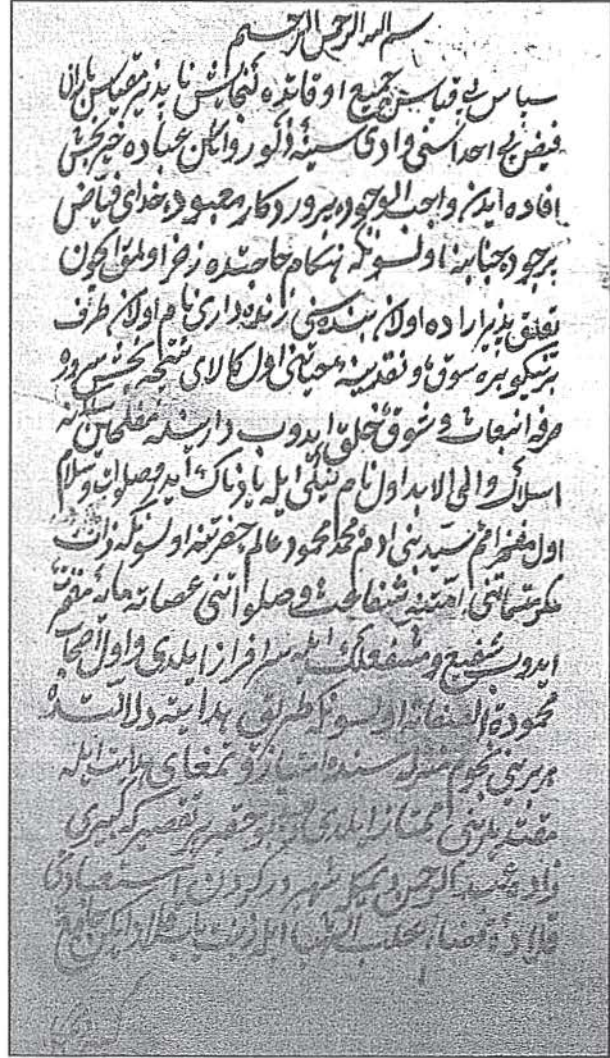 بسم الله الرحمن الرحيم
سپاس بی قیاس جمیع اوقاتده کنجایش ناپذیر مقیاس
فیض احداسنی وادی سینهٔ ذکور واناث عباده خیربخش
افاده ایدن واجب الوجود پروردکار معبود خدای فیاض
برجود جنابنه اولسونکه هنکام حاجتده زخر اولمق ایچون
تعلق پذیر اراده اولان بنده سنی زنده داری نام اولان طرف
سوق و نقدینهٔ حیاتنی اول کالای نتیجه بخش سروره
صرفه انبعاث و شوق خلق ایدوب
اسلاک والی الابد اول نام نیکی ایله یادناک ایدر وصلوات وسلام
اول مفخر امم سید بنی ادم محمد محمود عالم حضرتنه اولسونکه ذات
مکرمتسماتنی امتنه شفاعت وصلواتنی عصاته مایهٔ مغفرت
ایدوب شفیع و مشفعلک ایله سرافراز ایلدی واول اصحاب
محمودة الصفاته اولسونکه طریق هدایته دلالتده
هر برینی نجوم منزله سنده امتیاز و تمغای ایله
مقتدالرینی ممتاز ایلدی بو حقیر پر تقصیر که کبیری
زاده عبدالرحمن دیمکله شهیر در کردن استعدادی
قلادهٔ قضاء حلب الشهبا ایله زینت یاب ایکن جامع